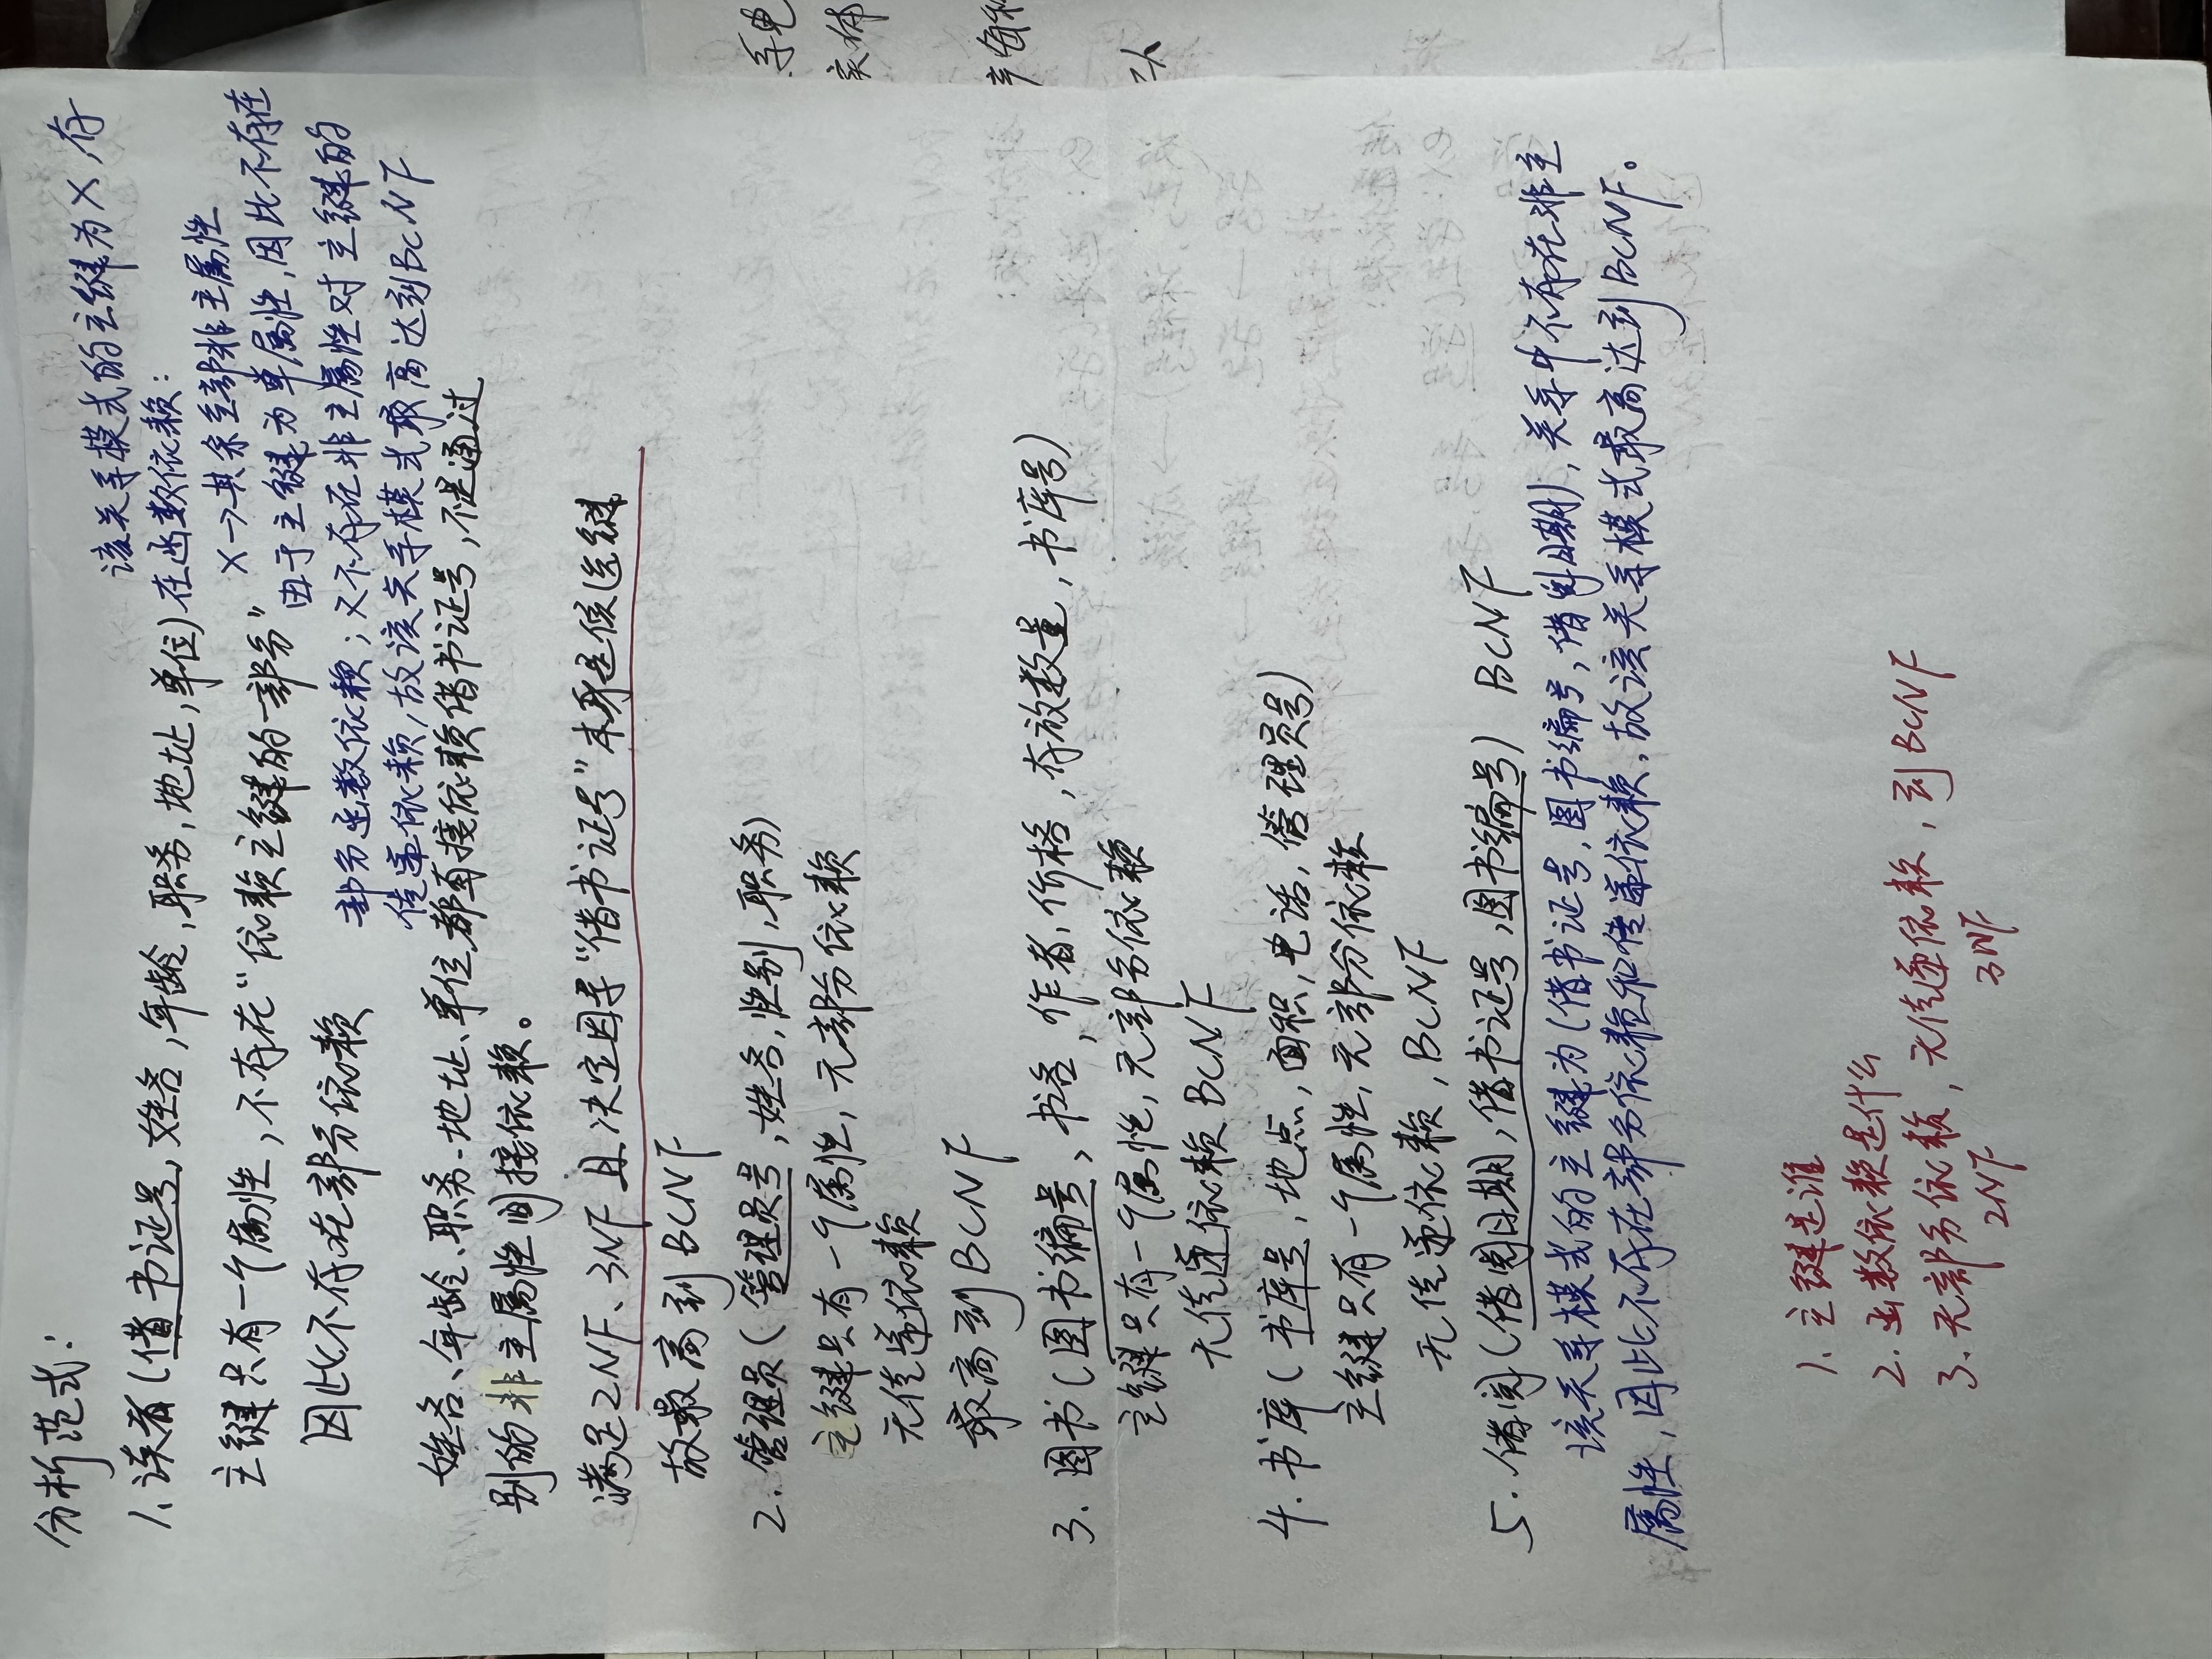 分析范式：
1、读者（借书证号，姓名，年龄，职务，地址，单位）
该关系模式的主键为X 存
在函数依赖：
X→其余全部非主属性
主键只有一个属性，不存在“依赖主键的一部分”
由于主键为单属性，因此不存在
因此不存在部分依赖
部分函数依赖；又不存在非主属性对主键的
传递依赖，故该关系模式最高达到BCNF
姓名、年龄、职务、地址、单位都直接依赖借书证号，不是通过
别的非主属性间接依赖。
满足2NF、3NF 且决定因子“借书证号”本身是候选键
故最高到BCNF
2.管理员（管理员号，姓名，性别，职务）
主键只有一个属性，无部分依赖
无传递依赖
最高到BCNF
3.图书（图书编号，书名，作者，价格，存放数量，书库号）
主键只有一个属性，无部分依赖
无传递依赖 BCNF
4.书库（书库号，地点，面积，电话，管理员号）
主键只有一个属性，无部分依赖
无传递依赖，BCNF
5.借阅（借阅日期，借书证号，图书编号） BCNF
该关系模式的主键为（借书证号，图书编号，借阅日期），关系中不存在非主
属性，因此不存在部分依赖和传递依赖，故该关系模式最高达到BCNF。
1、主键是谁
2.函数依赖是什么
3、无部分依赖，无传递依赖，到BCNF
2NF 3NF
手电
实体